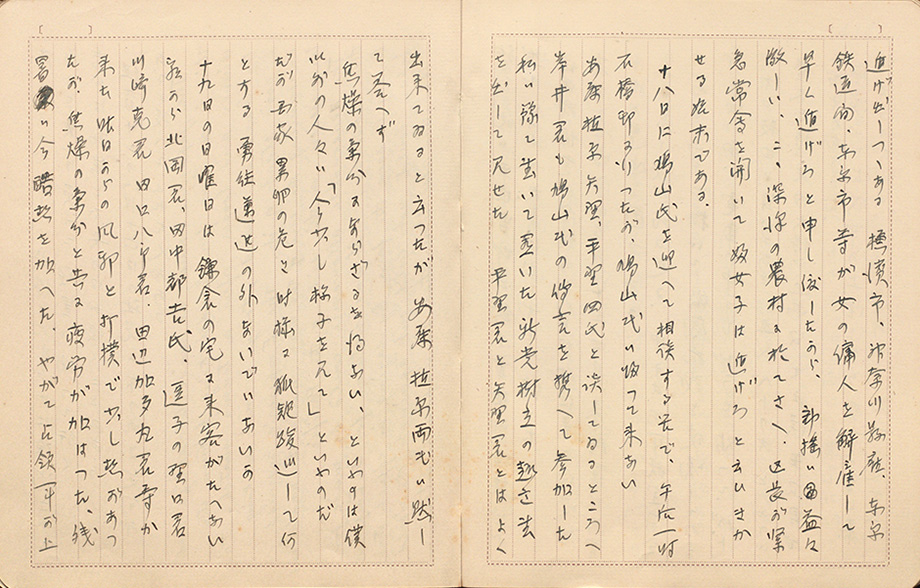 逃げ出しつゝある 横濱市、神奈川縣廳、東京
鉄道局、東京市等が女の傭人を解雇して
早く逃げろと申し渡したから、動揺は益々
激しい、こゝ深沢の農村に於てさへ、区長が緊
急常会を開いて婦女子は逃げろと云ひきか
せる始末である。
十八日に鳩山氏を迎へて相談する筈で、午后一時
石橋邸に行つたが、鳩山氏は帰つて来ない
安藤 植原 矢野、平野四氏と談してゐるところへ
岸井君も鳩山氏の伝言を携へて参加した
私は豫て書いて置いた新党樹立の趣意書
を出して見せた 平野君と矢野君とはよく
出来てゐると云つたが 安藤 植原両氏は黙し
て答へず
焦燥の気分にあらざるを得ない、といふのは僕
以外の人々は「今少し様子を見て」といふのだ
だが国家累卵の危き時機に狐疑逡巡して何
とする 勇往邁進の外ないでいないか
十九日の日曜日は鎌倉の宅に来客がたへない
朝から北岡君、田中都吉氏、逗子の野口君
川崎克君 田口八郎君、田辺加多丸君等が
来た 昨日からの風邪と打撲で少し熱があつ
たが 焦燥の気分と共に疲労が加はつた、残
暑は今酷熱を加へた、やがて占領軍が上